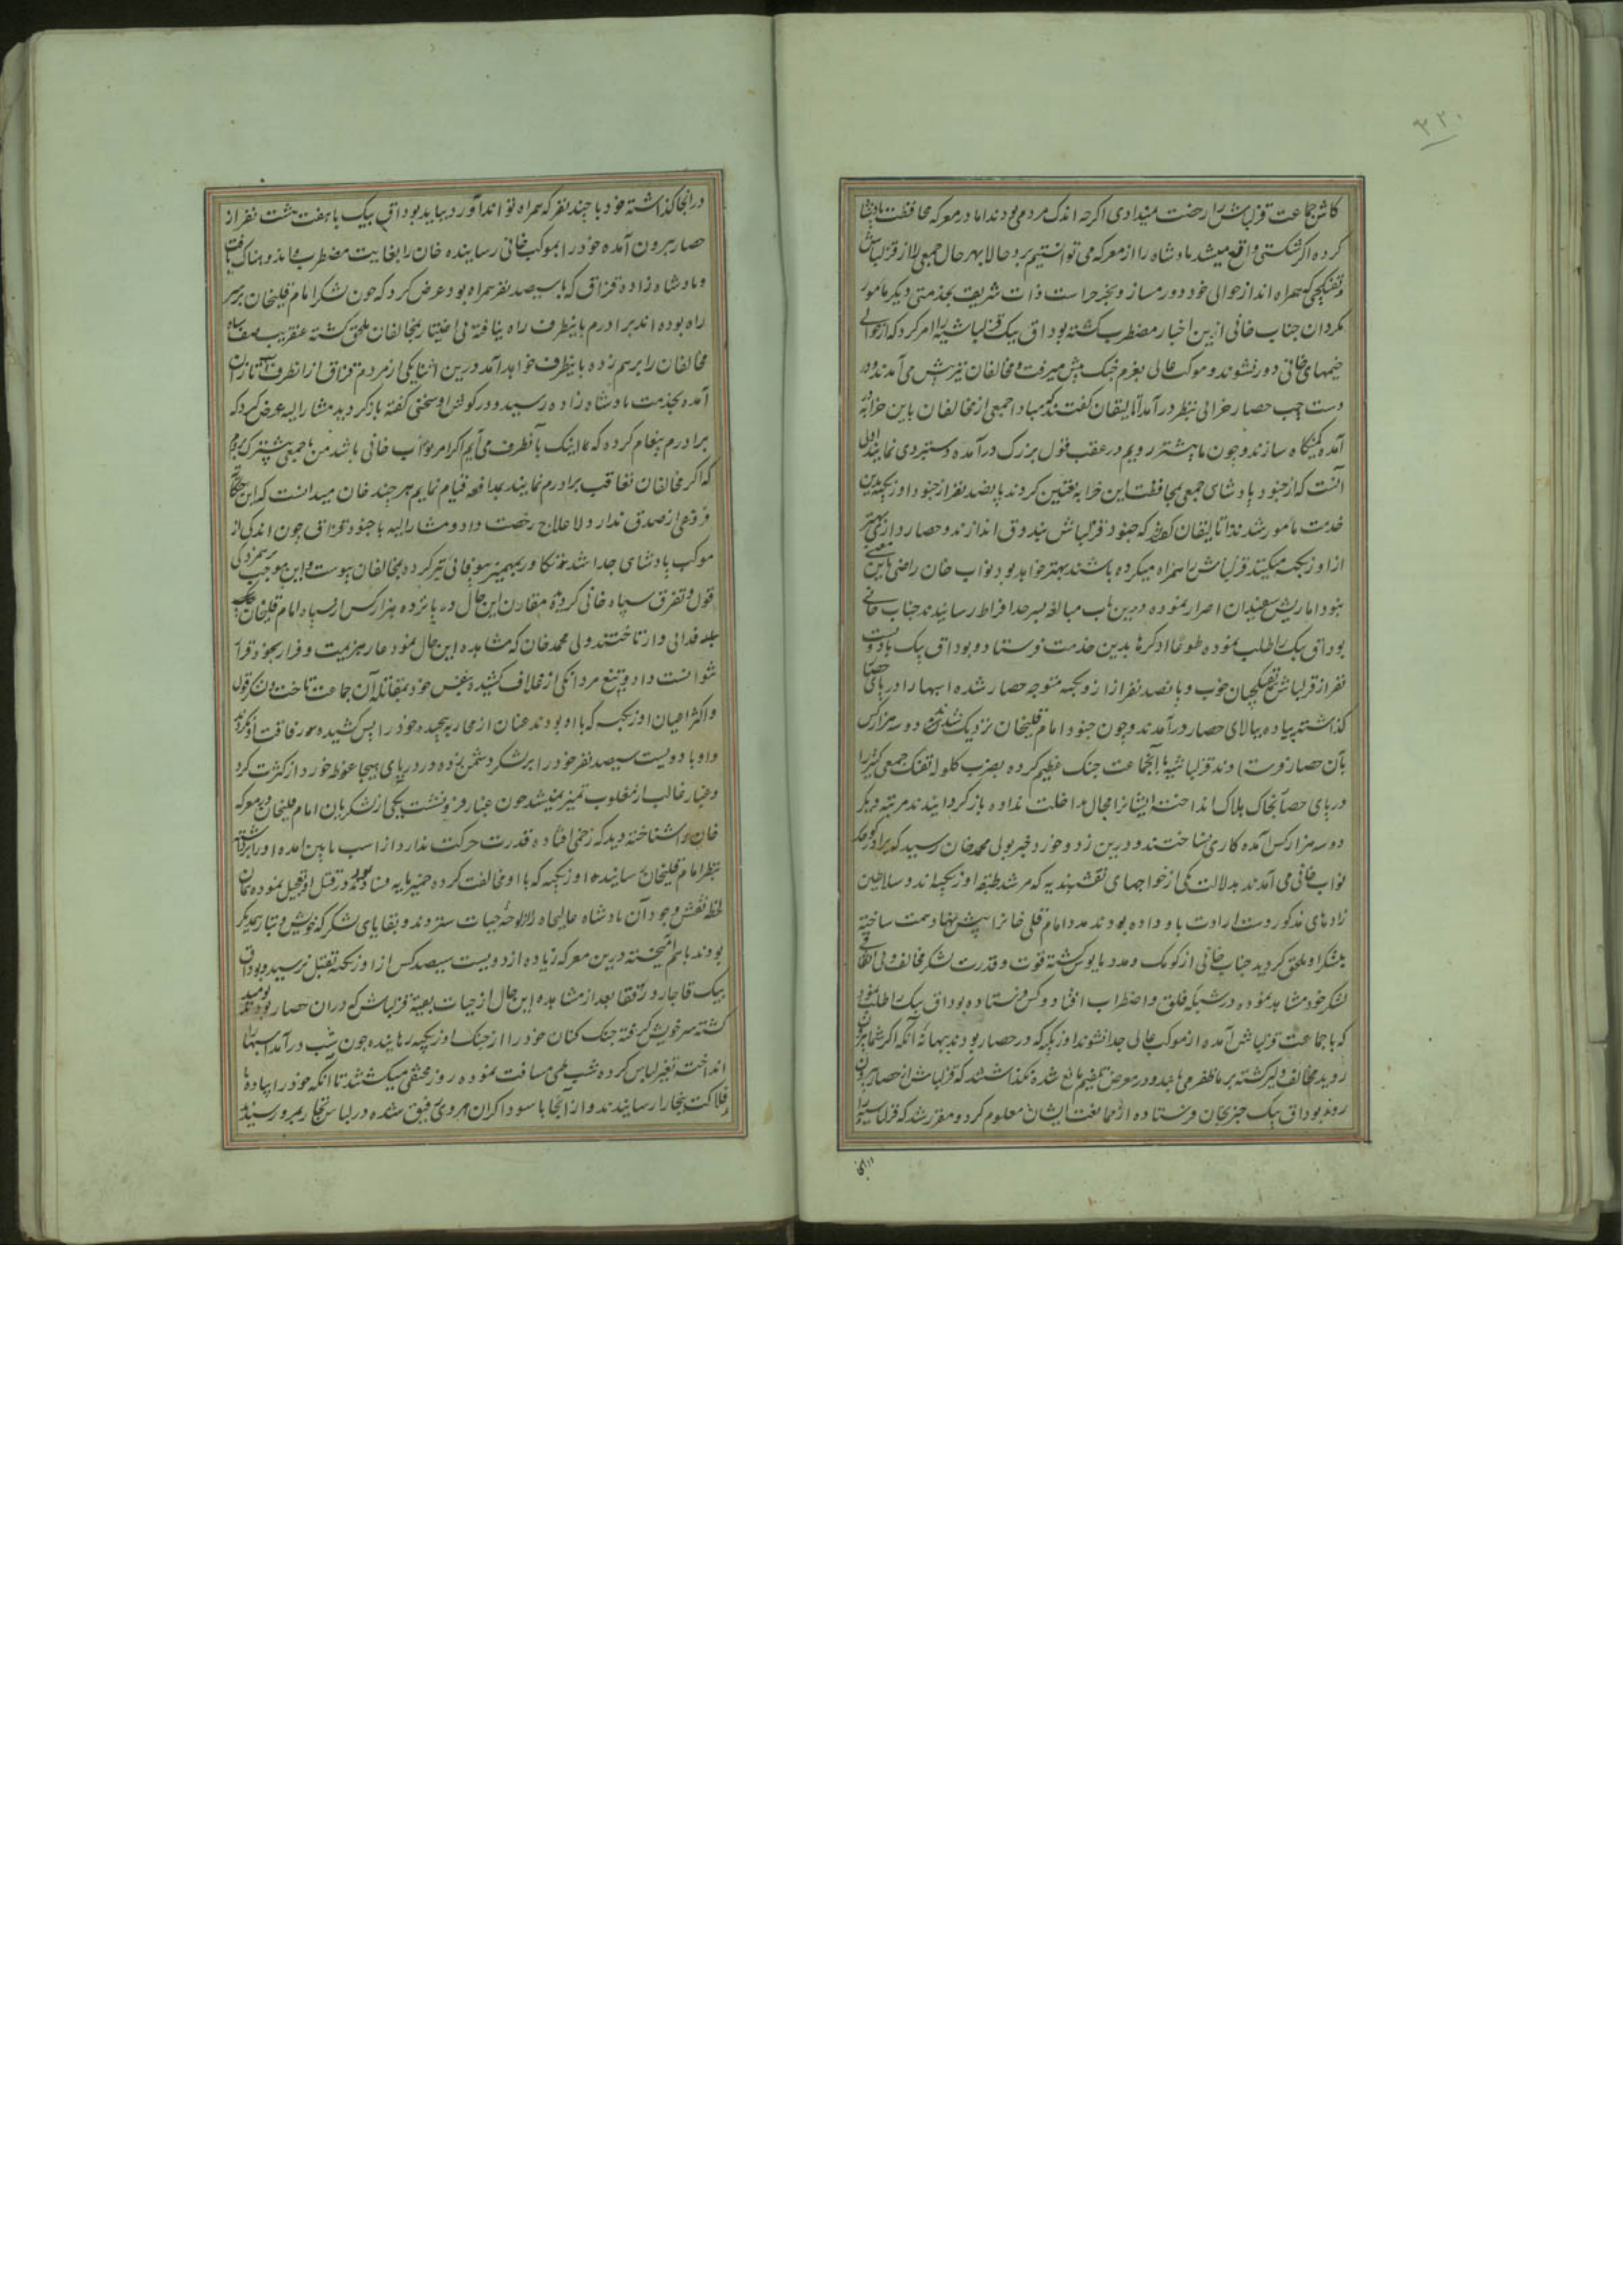 ۳۲۰
کاش جماعت قزلباش را رخصت میدادی اکرچه اندک مردمی بودند اما در معرکه محافظت پادشاه
کرده اکر شکستی واقع میشد پادشاه را از معرکه می توانستیم برد حالا بهر حال جمعی را از قزلباش
و تفنکچی که همراه اند از حوالی خود دور مساز و بجز حراست ذات شریف بخدمتی دیکر مامور
مکردان جناب خانی ازین اخبار مضطرب کشته بوداق بیک و قزلباشیه را امر کرد که از حوالی
خیمهای خانی دور نشوند و موکب عالی بعزم جنک پیش میرفت و مخالفان نیز پیش می آمدند و در
دست چپ حصار خرابی بنظر در آمد اتالیقان کفتند که مبادا جمعی از مخالفان باین خرابه
آمده کمینکاه سازند و چون ما پیشتر رویم در عقب قول بزرک در آمده دستبردی نمایند اولی
آنست که از جنود پادشاهی جمعی بمحافظت این خرابه تعیین کردند پانصد نفر از جنود اوزبکیه بدین
خدمت مامور شدند اتالیقان کفتند که جنود قزلباش بندوق اندازند و حصار داری بهتر
از اوزبکیه میکنند قزلباش را همراه میکرده باشند بهتر خواهد بود نواب خان راضی باین معنی
نبود اما ریش سفیدان اصرار نموده درین باب مبالغه بسر حد افراط رسانیدند جناب خانی
بوداق بیک را طلب نموده طوعا او کرها بدین خدمت فرستاد و بوداق بیک با دویست
نفر از قزلباش تفنکچیان خوب و پانصد نفر از اوزبکیه متوجه حصار شده اسبها را در پای حصار
کذاشته پیاده ببالای حصار در آمدند و چون جنود امام قلیخان نزدیک شدند دو سه هزار کس
بآن حصار فرستادند قزلباشیه با آنجماعت جنک عظیم کرده بضرب کلوله تفنک جمعی کثیر را
در پای حصار بخاک هلاک انداختند ایشانرا مجال مداخلت نداده باز کردانیدند مرتبه دیکر
دو سه هزار کس آمده کاری نساختند و درین زد و خورد خبر بولی محمد خان رسید که برادر کوچک
نواب خانی می آمدند بدلالت یکی از خواجهای نقشبندیه که مرشد طبقه اوزبکیه اند و سلاطین
زادهای مذکور دست ارادت باو داده بودند مدد امام قلی خانرا پیش نهاد همت ساخته
بلشکر او ملحق کردید جناب خانی از کومک و مدد مایوس کشته قوت و قدرت لشکر مخالف و بی اتفاقی
لشکر خود مشاهده نموده در شبکه قلق و اضطراب افتاد و کس فرستاده بوداق بیک را طلب نمود
که با جماعت قزلباش آمده از موکب عالی جدا نشوند اوزبکیه که در حصار بودند ببهانه آنکه اکر شما بیرون
روید مخالف دلیر کشته بر ما ظفر می یابد و در معرض تلفیم مانع شده نکذاشتند که قزلباش از حصار بیرون
روند بوداق بیک چیز بخان فرستاده از ممانعت ایشان معلوم کرد و مقرر شد که قزلباشیه را
در انجا
در انجا کذاشته خود با چند نفر که همراه تواند آورد بیاید بوداق بیک با هفت هشت نفر از
حصار بیرون آمده خود را بموکب خانی رسانیده خان را بغایت مضطرب و اندوهناک یافت
و پادشاه زاده قزاق که با سیصد نفر همراه بود عرض کرد که چون لشکر امام قلیخان بر سر
راه بوده اند برادرم باینطرف راه نیافته بی اختیار بمخالفان ملحق کشته عنقریب صف سپاه
مخالفان را برهم زده باینطرف خواهد آمد درین اثنا یکی از مردم قزاق از انطرف اسب تازان
آمده بخدمت پادشاه زاده رسید و در کوش او سخنی کفته باز کردید مشار الیه عرض کرد که
برادرم پیغام کرده که ما اینک بآنطرف می آیم اکر امر نواب خانی باشد من با جمعی پیشتر بروم
که اکر مخالفان تعاقب برادرم نمایند بمدافعه قیام نمایم هر چند خان میدانست که این حکایت
فروغی از صدق ندارد لاعلاج رخصت داد و مشار الیه با جنود قزاق چون اندکی از
موکب پادشاهی جدا شد تکاور بمهمیز بیوفائی تیز کرده بمخالفان پیوست و این موجب برهمزدکی
قول و تفرق سپاه خانی کردید مقارن این حال ده پانزده هزار کس از سپاه امام قلیخان
جلو فدائی وار تاختند ولی محمد خان که مشاهده این حال نمود عار هزیمت و فرار بخود قرار
نتوانست داد و تیغ مردانکی از غلاف کشیده بنفس خود بمقاتله آن جماعت تاخت لشکر قول
و اکثر اعیان اوزبکیه که با او بودند عنان از محاربه پیچیده خود را پس کشیده رفاقت او نکردند
و او با دویست سیصد نفر خود را بر لشکر دشمن زده در دریای هیجا غوطه خورد از کثرت کرد
و غبار غالب از مغلوب تمیز نمیشد چون غبار فرو نشست یکی از لشکریان امام قلیخان در معرکه
خان را شناخته دید که زخمی افتاده قدرت حرکت ندارد از اسب پایین آمده او را برداشته
بنظر امام قلیخان رسانیده اوزبکیه که با او مخالفت کرده خمیرمایه فساد بودند در قتل او تعجیل نموده همان
لحظه نقش وجود آن پادشاه عالیجاه را از لوحه حیات ستردند و بقایای لشکر که خویش و تبار یکدیکر
بودند باهم آمیخته درین معرکه زیاده از دویست سیصد کس از اوزبکیه بقتل نرسید و بوداق
بیک قاجار و رفقا بعد از مشاهده این حال از حیات بقیه قزلباش که دران حصار بودند نومید
کشته سر خویش کرفته جنک کنان خود را از جنک اوزبکیه رهانیده چون شب در آمد اسبها را
انداخته تغییر لباس کرده شب طی مسافت نموده روز مختفی میکشتند تا آنکه خود را پیاده با
فلاکت ببخارا رسانیدند و از انجا با سوداکران هروی رفیق شده در لباس تجار بمرو رسیدند